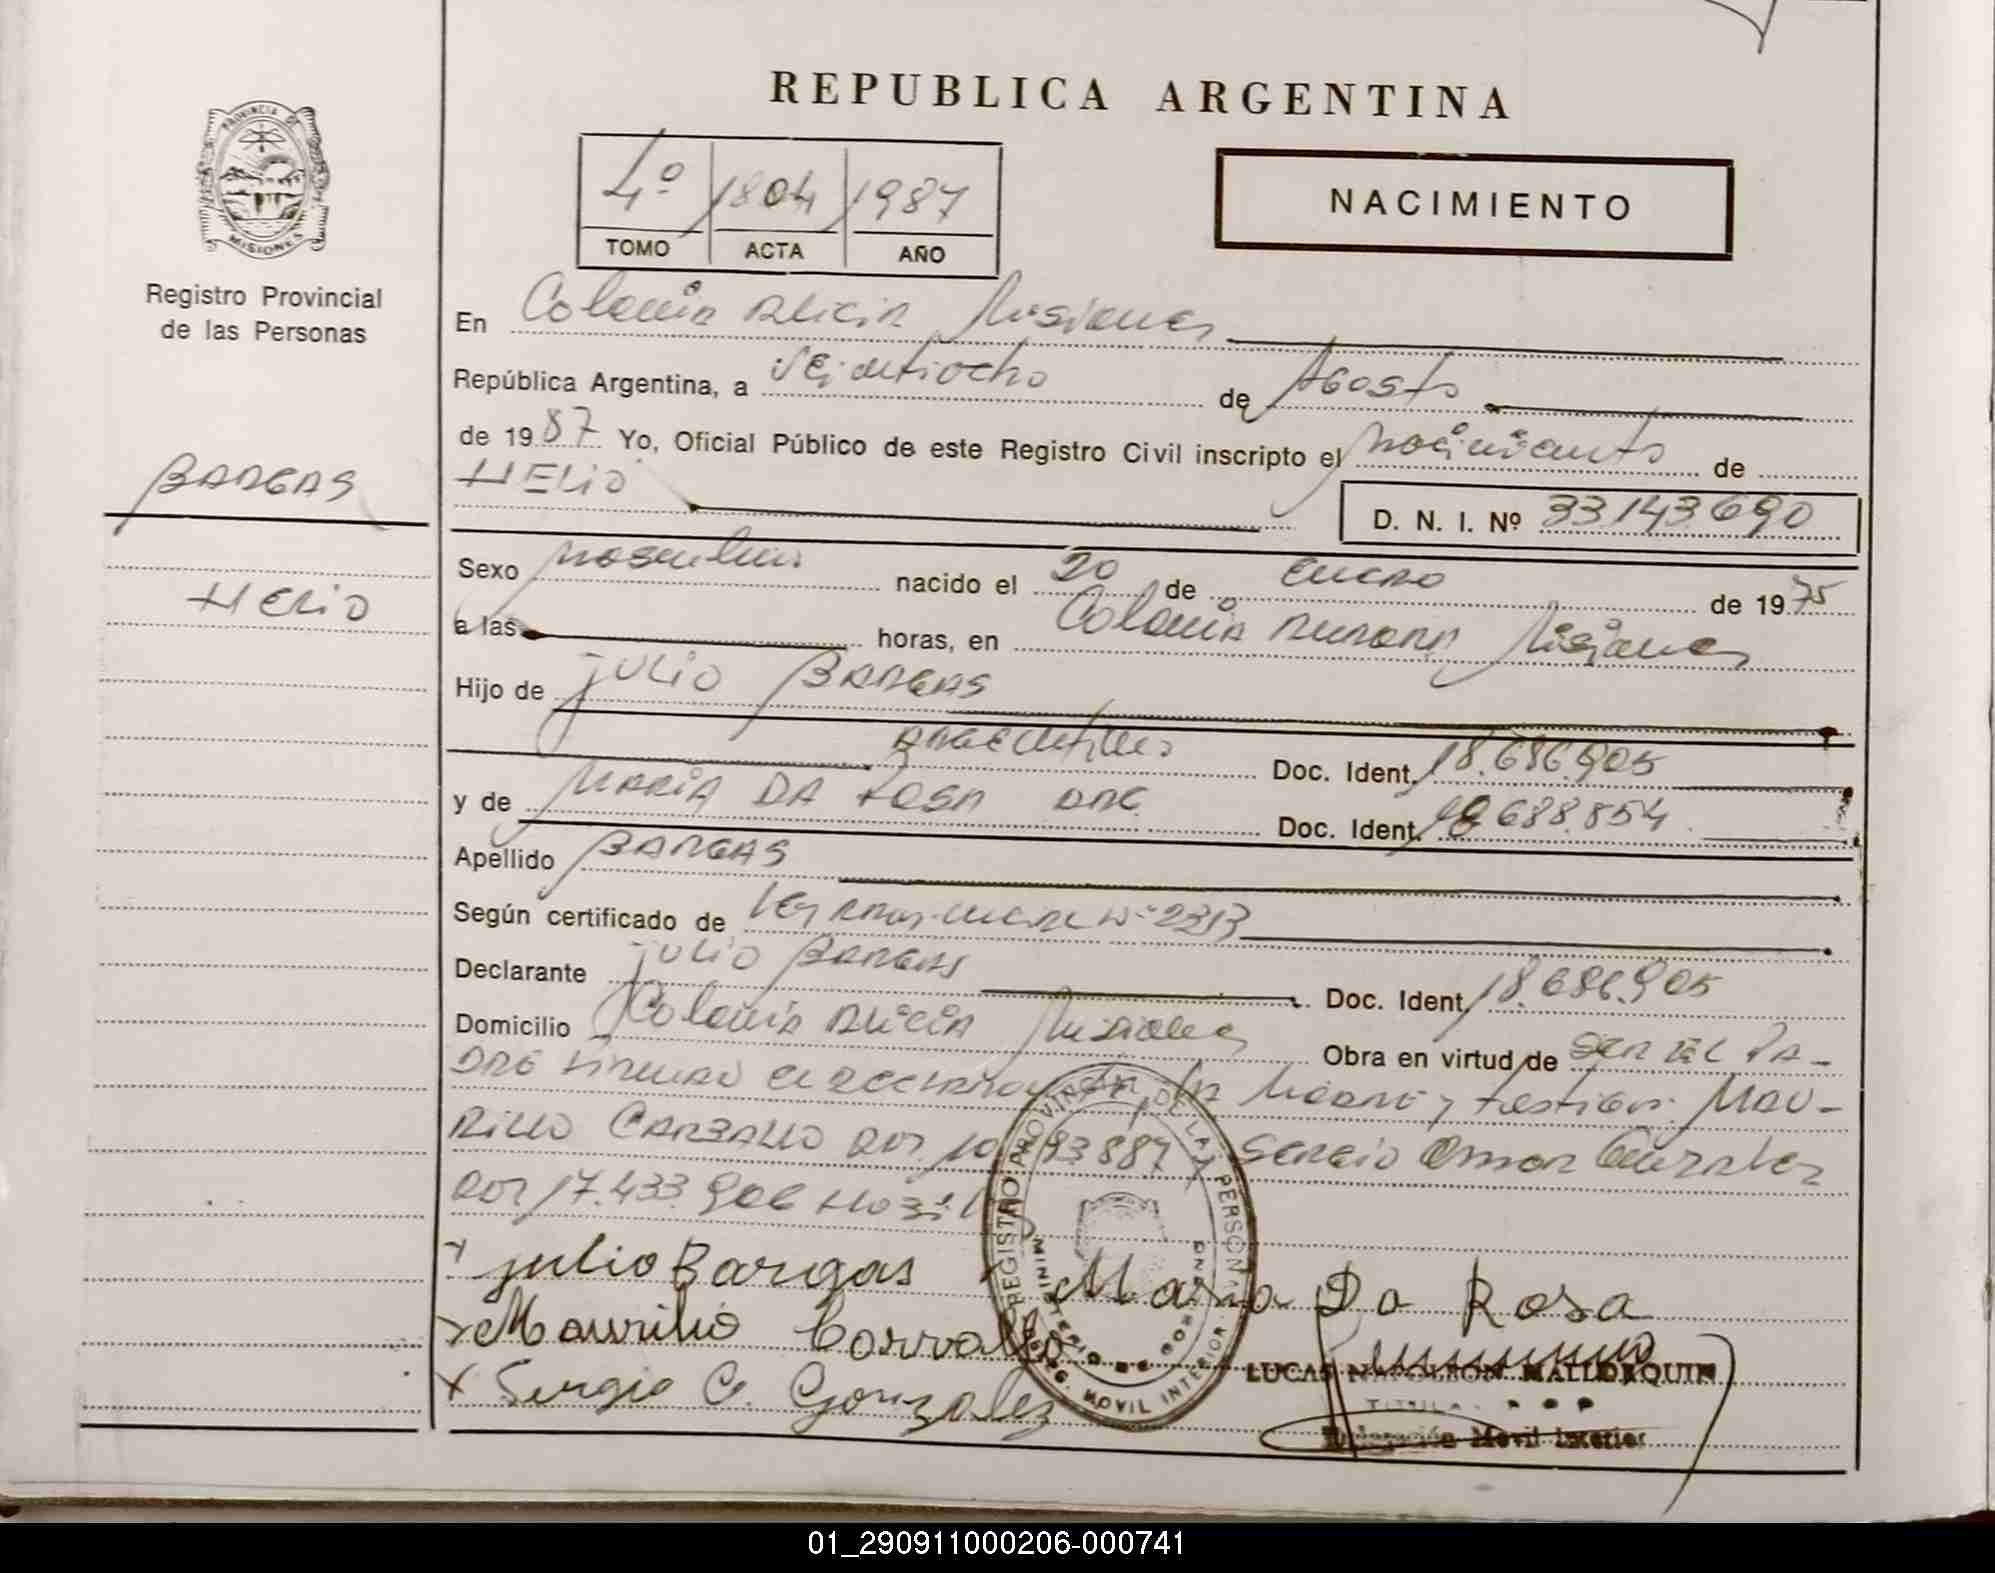 REPUBLICA ARGENTINA
PROVINCIA DE
MISIONES
Registro Provincial
de las Personas
4º 1804 1987
TOMO ACTA AÑO
NACIMIENTO
En Colonia Alicia Misiones
República Argentina, a Veintiocho de Agosto
de 1987 Yo, Oficial Público de este Registro Civil inscripto el nacimiento de
BARGAS
HELIO
D. N. I. Nº 33.143.690
Sexo masculino nacido el 20 de Enero de 1975
HELIO
a las horas, en Colonia Aurora Misiones
Hijo de JULIO BARGAS
Argentino Doc. Ident. 18.686.905
y de MARIA DA ROSA ARG. Doc. Ident. 18.688.854
Apellido BARGAS
Según certificado de Ley Nº 2313
Declarante JULIO BARGAS Doc. Ident. 18.686.905
Domicilio Colonia Alicia Misiones Obra en virtud de SER EL PA-
DRE Firman el declarante, la Madre y testigos: MAU-
RILIO CARBALLO y Sergio Omar Gonzalez
17.433.906
x julio Bargas x Maria Da Rosa
x Maurilio Corvallo
x Sergio O. Gonzalez
REGISTRO PROVINCIAL DE LAS PERSONAS
MINISTERIO DE GOBIERNO
REG. MOVIL INTERIOR
LUCAS NAPOLEON MALLORQUIN
TITULAR
Delegación Movil Interior
01_290911000206-000741